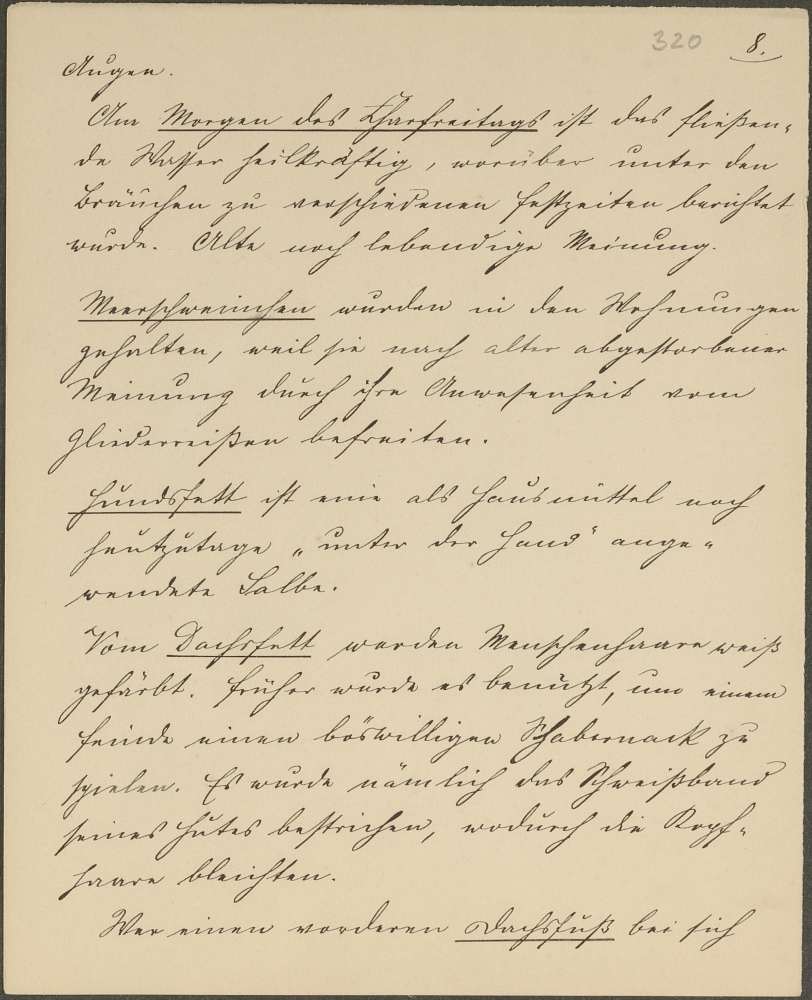 320 8.
Augen.
Am Morgen des Charfreitags ist das fließen-
de Wasser heilkräftig, worüber unter den
Bräuchen zu verschiedenen Festzeiten berichtet
wurde. Alte noch lebendige Meinung.
Meerschweinchen wurden in den Wohnungen
gehalten, weil sie nach alter abgestorbener
Meinung durch ihre Anwesenheit vom
Gliederreißen befreiten.
Hundsfett ist eine als Hausmittel noch
heutzutage „unter der Hand" ange-
wendete Salbe.
Vom Dachsfett werden Menschenhaare weiß
gefärbt. Früher wurde es benützt, um einem
Feinde einen böswilligen Schabernack zu
spielen. Es wurde nämlich das Schweißband
seines Hutes bestrichen, wodurch die Kopf-
haare bleichten.
Wer einen vorderen Dachsfuß bei sich